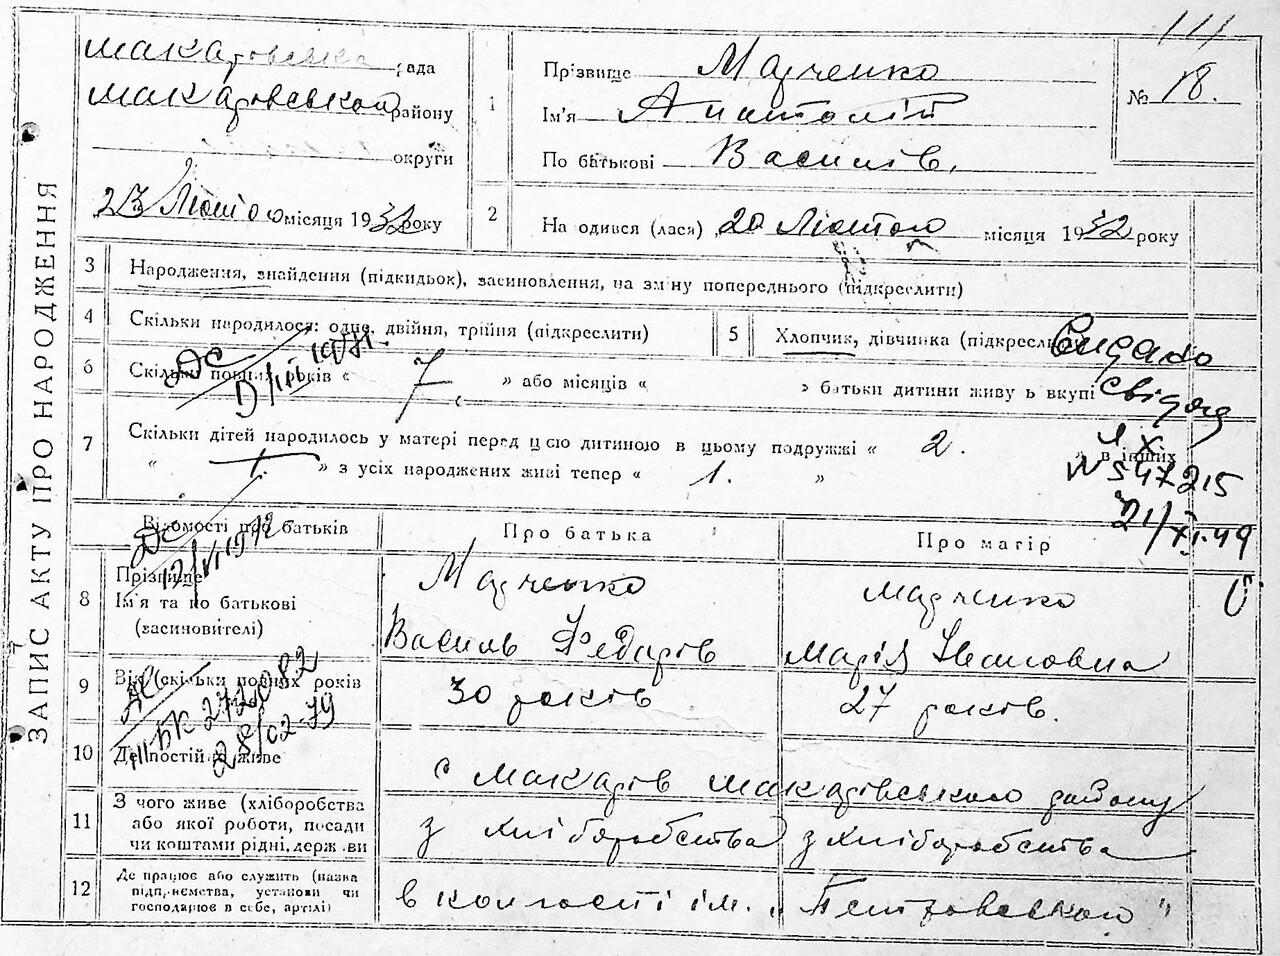 111
Макаровська рада
Макаровського району
округи
23 Лютого місяця 1932 року
1
Прізвище Марченко
Ім'я Анатолій
По батькові Василів.
№ 18.
2
Народився (лася) 20 Лютого місяця 1932 року
3
Народження, знайдення (підкидьок), засиновлення, на зміну попереднього (підкреслити)
4
Скільки народилося: одне, двійня, трійня (підкреслити)
5
Хлопчик, дівчинка (підкреслити)
6
Скільки повних років « 7 » або місяців « » батьки дитини живуть вкупі
7
Скільки дітей народилось у матері перед цією дитиною в цьому подружжі « 2. » в інших
« 1. » з усіх народжених живі тепер « 1. »
Видано
свідоц
№ 547215
21/XI.49
Відомості про батьків
Про батька
Про матір
8
Прізвище
Ім'я та по батькові
(засиновителі)
Марченко
Василь Федорів
Марченко
Марія Івановна
9
Вік (скільки повних років
30 років
27 років.
10
Де постійно живе
с Макарів Макарівського району
11
З чого живе (хліборобства
або якої роботи, посади
чи коштами рідні, держави
з хліборобства
з хліборобства
12
Де працює або служить (назва
підприємства, установи чи
господарює в себе, артілі)
в колгоспі ім. „Петровського"
12/VI 1972
III БК 272082
28/02-79
ЗАПИС АКТУ ПРО НАРОДЖЕННЯ